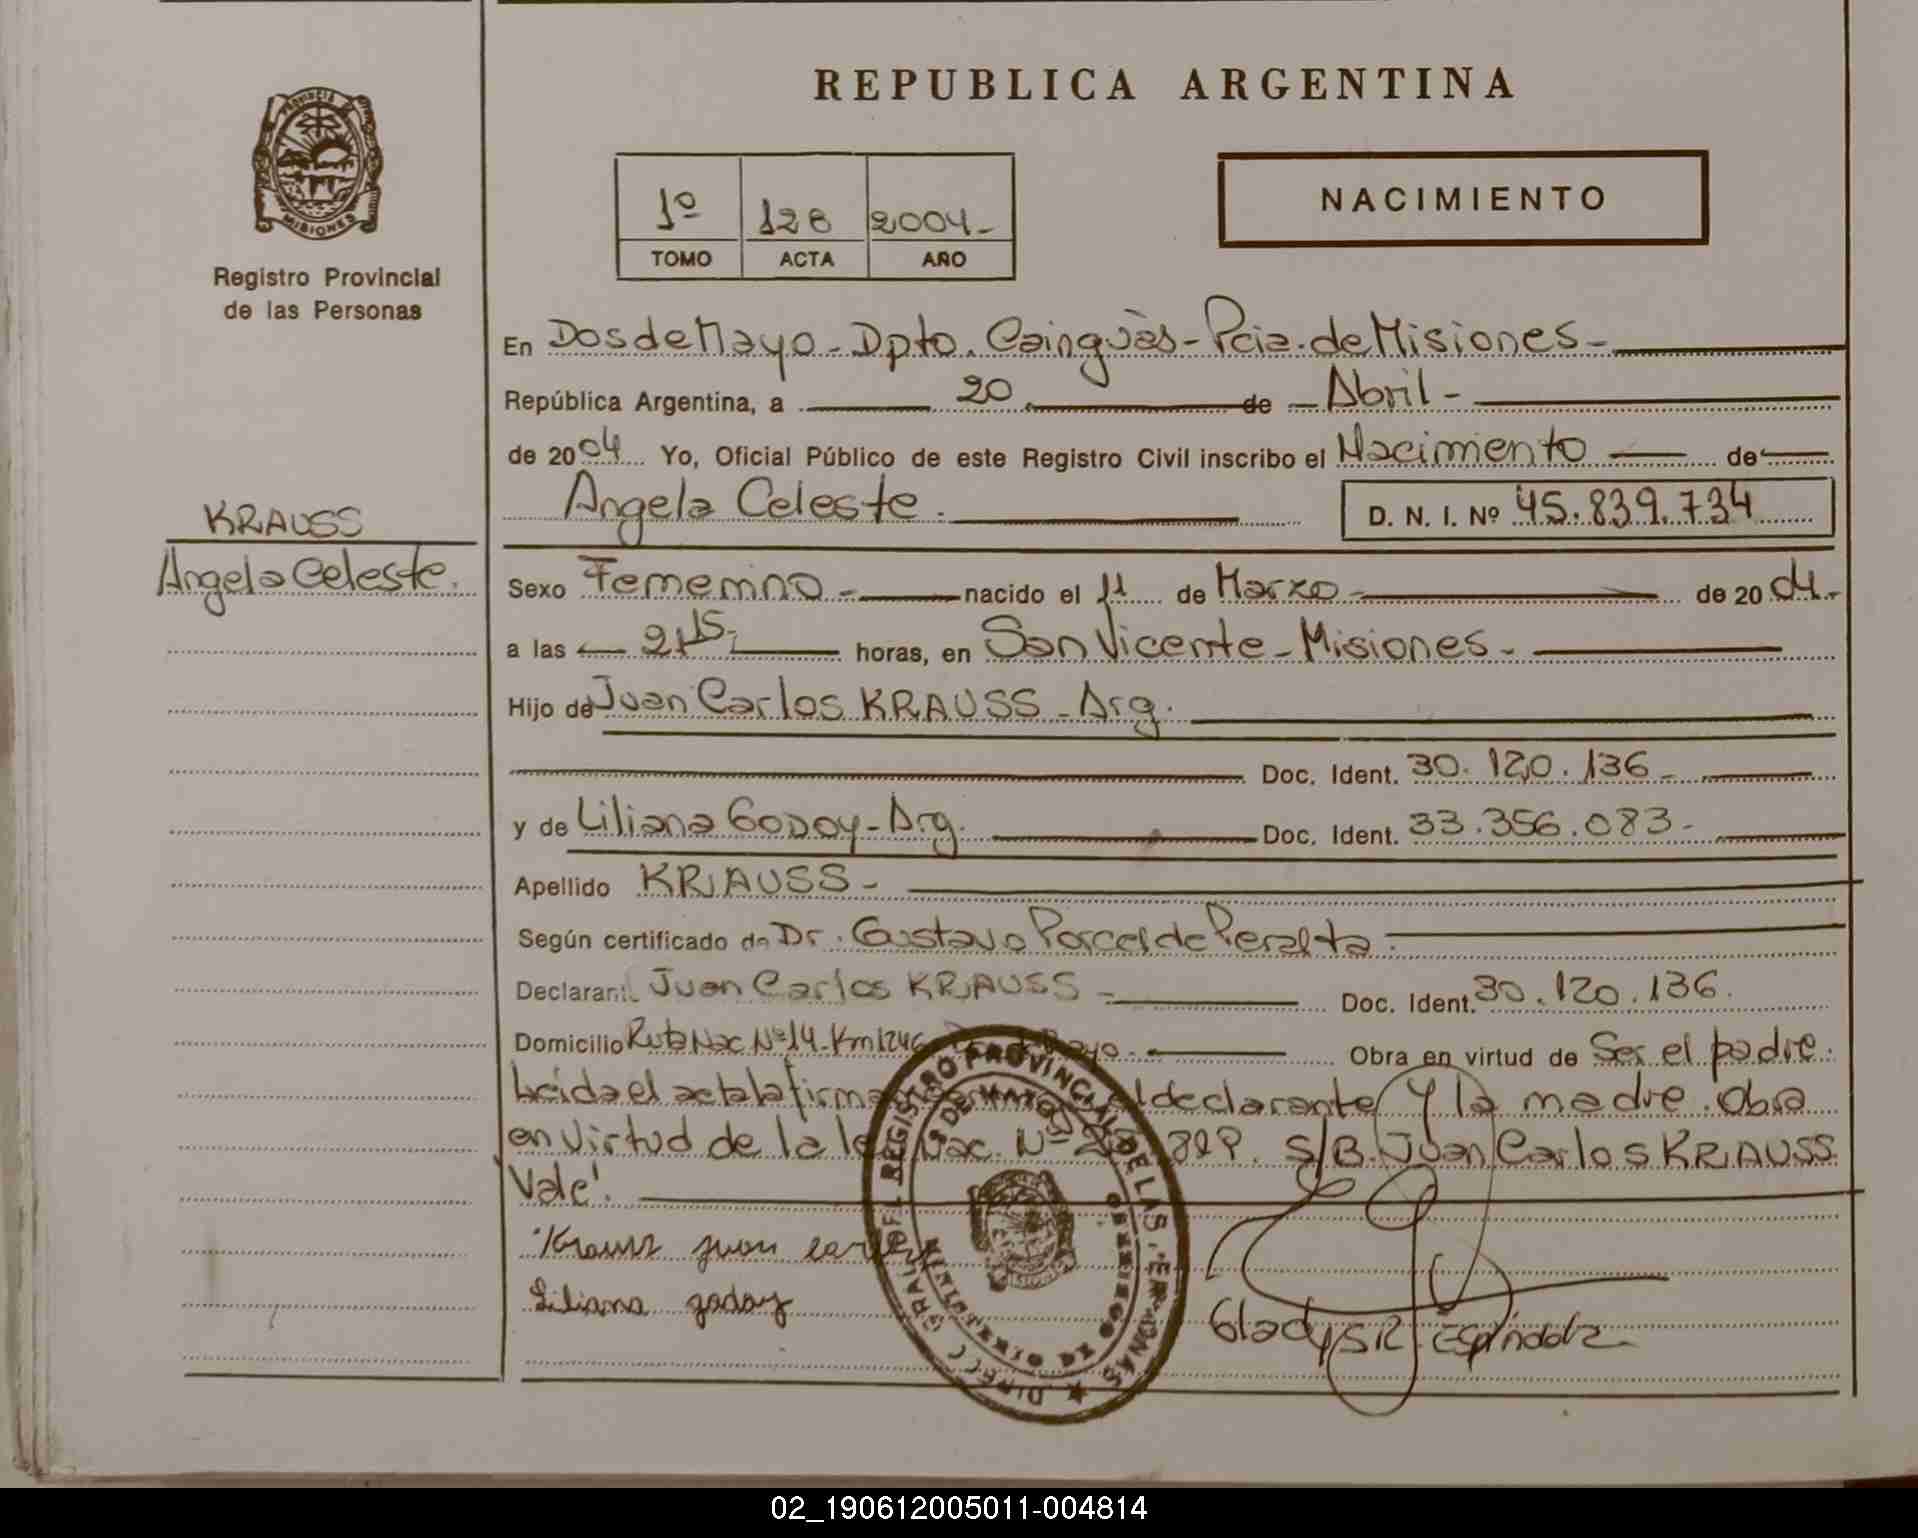 REPUBLICA ARGENTINA
PROVINCIA
MISIONES
Registro Provincial
de las Personas
1º 128 2004-
TOMO ACTA AÑO
NACIMIENTO
En Dos de Mayo - Dpto. Cainguàs - Pcia. de Misiones -
República Argentina, a 20 de Abril -
de 2004 Yo, Oficial Público de este Registro Civil inscribo el Nacimiento de
Angela Celeste.
D. N. I. Nº 45.839.734
KRAUSS
Angela Celeste.
Sexo Femenino - nacido el 11 de Marzo - de 2004.-
a las horas, en San Vicente - Misiones -
Hijo de Juan Carlos KRAUSS - Arg.
Doc. Ident. 30.120.136 -
y de Liliana GODOY - Arg. Doc. Ident. 33.356.083 -
Apellido KRAUSS -
Según certificado de Dr. Gustavo Porcel de Peralta.
Declarant. Juan Carlos KRAUSS - Doc. Ident. 30.120.136.
Domicilio Ruta Nac Nº 14 - Km 1246 Mayo - Obra en virtud de Ser el padre.
Leida el acta la firma el declarante y la madre. Obra
en virtud de la Nac. Nº S/B. Juan Carlos KRAUSS
Vale'.
Krauss juan carlos
Liliana godoy
Gladys R. Espíndola
REGISTRO PROVINCIAL DE LAS PERSONAS
02_190612005011-004814